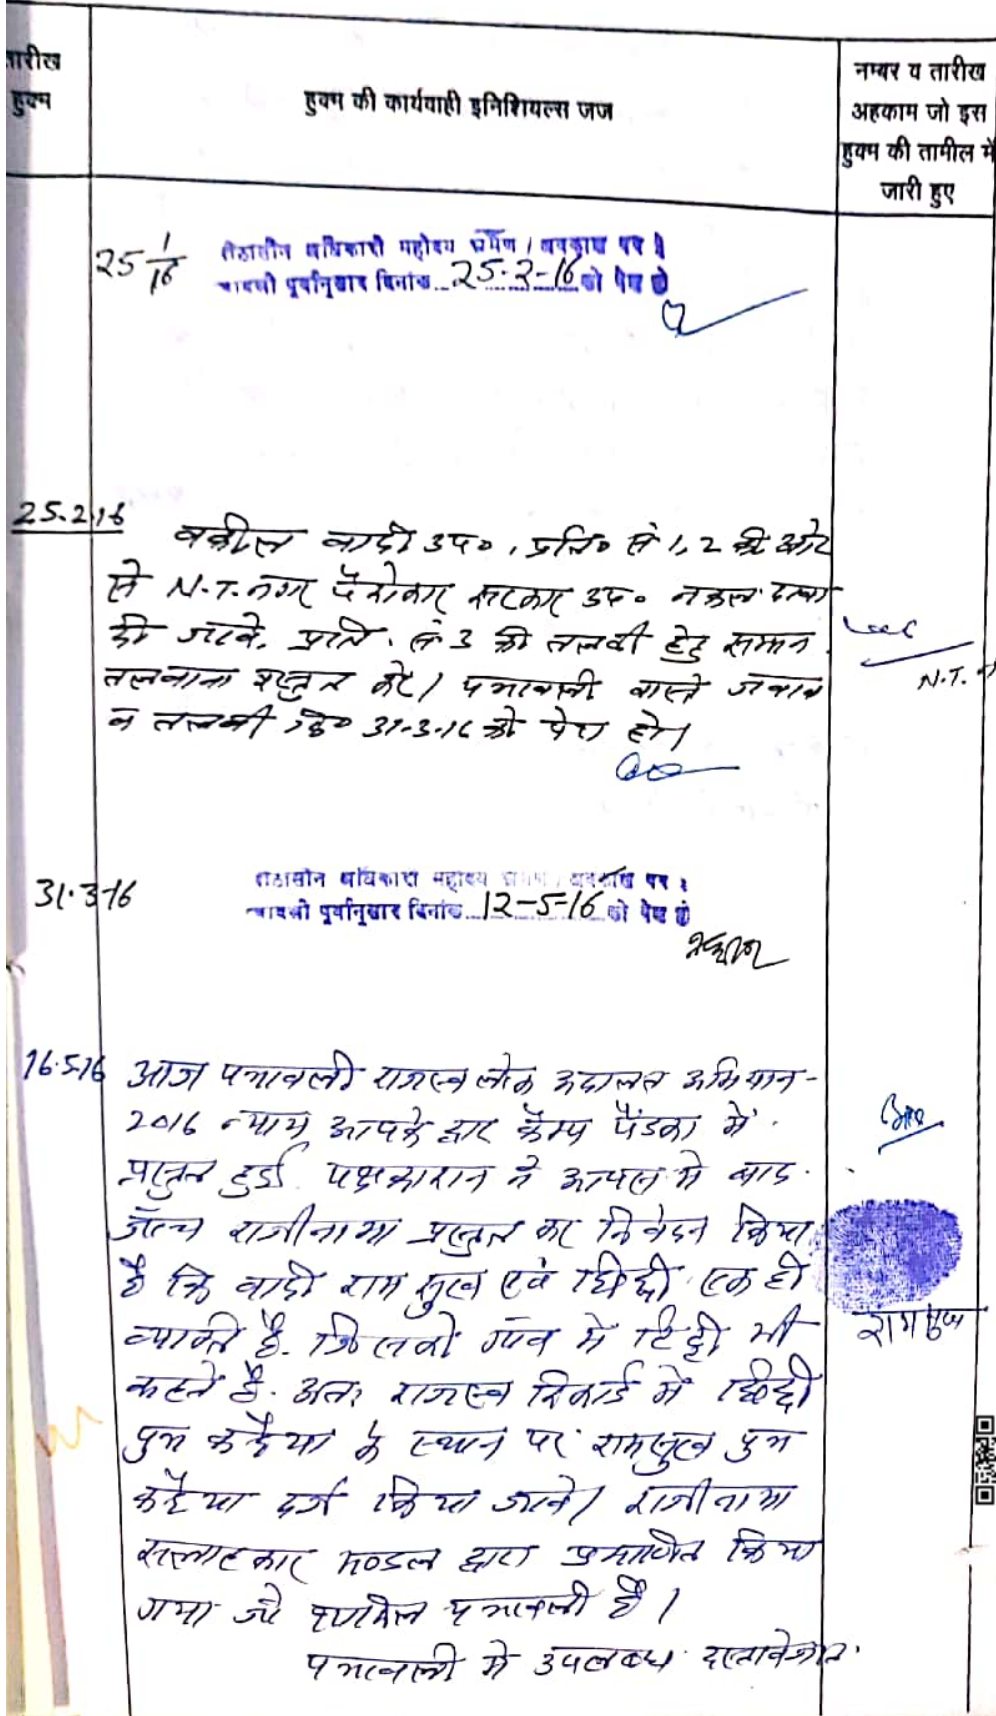 तारीख
हुक्म
हुक्म की कार्यवाही इनिशियल्स जज
नम्बर व तारीख
अहकाम जो इस
हुक्म की तामील में
जारी हुए
25 1/16
पीठासीन अधिकारी महोदय भ्रमण / अवकाश पर है
पत्रावली पूर्वानुसार दिनांक 25-2-16 को पेश हो
25.2.16
वकील वादी उप०, प्रति० सं 1, 2 की ओर
से N.T. नगर पैरोकार सरकार उप० नकल दावा
दी जावे. प्रति. सं 3 की तलबी हेतु समान
तलवाना प्रस्तुत करे / पत्रावली वास्ते जवाब
व तलबी दि० 31-3-16 को पेश हो।
N.T.
31.3.16
पीठासीन अधिकारी महोदय भ्रमण / अवकाश पर है
पत्रावली पूर्वानुसार दिनांक 12-5-16 को पेश हो
16.5.16
आज पत्रावली राजस्व लोक अदालत अभियान-
2016 न्याय आपके द्वार कैम्प पैंडका में
प्रस्तुत हुई. पक्षकारान ने आपस में बाद
जॉच्च राजीनामा प्रस्तुत कर निवेदन किया
है कि वादी राम सुख एवं छिद्दी एक ही
व्यक्ति है. जिसको गांव में छिद्दी भी
कहते है. अतः राजस्व रिकार्ड में छिद्दी
पुत्र कन्हैया के स्थान पर रामसुख पुत्र
कन्हैया दर्ज किया जावे / राजीनामा
सलाहकार मण्डल द्वारा प्रमाणित किया
गया जो शामिल पत्रावली है /
पत्रावली में उपलब्ध दस्तावेजात
रामसुख